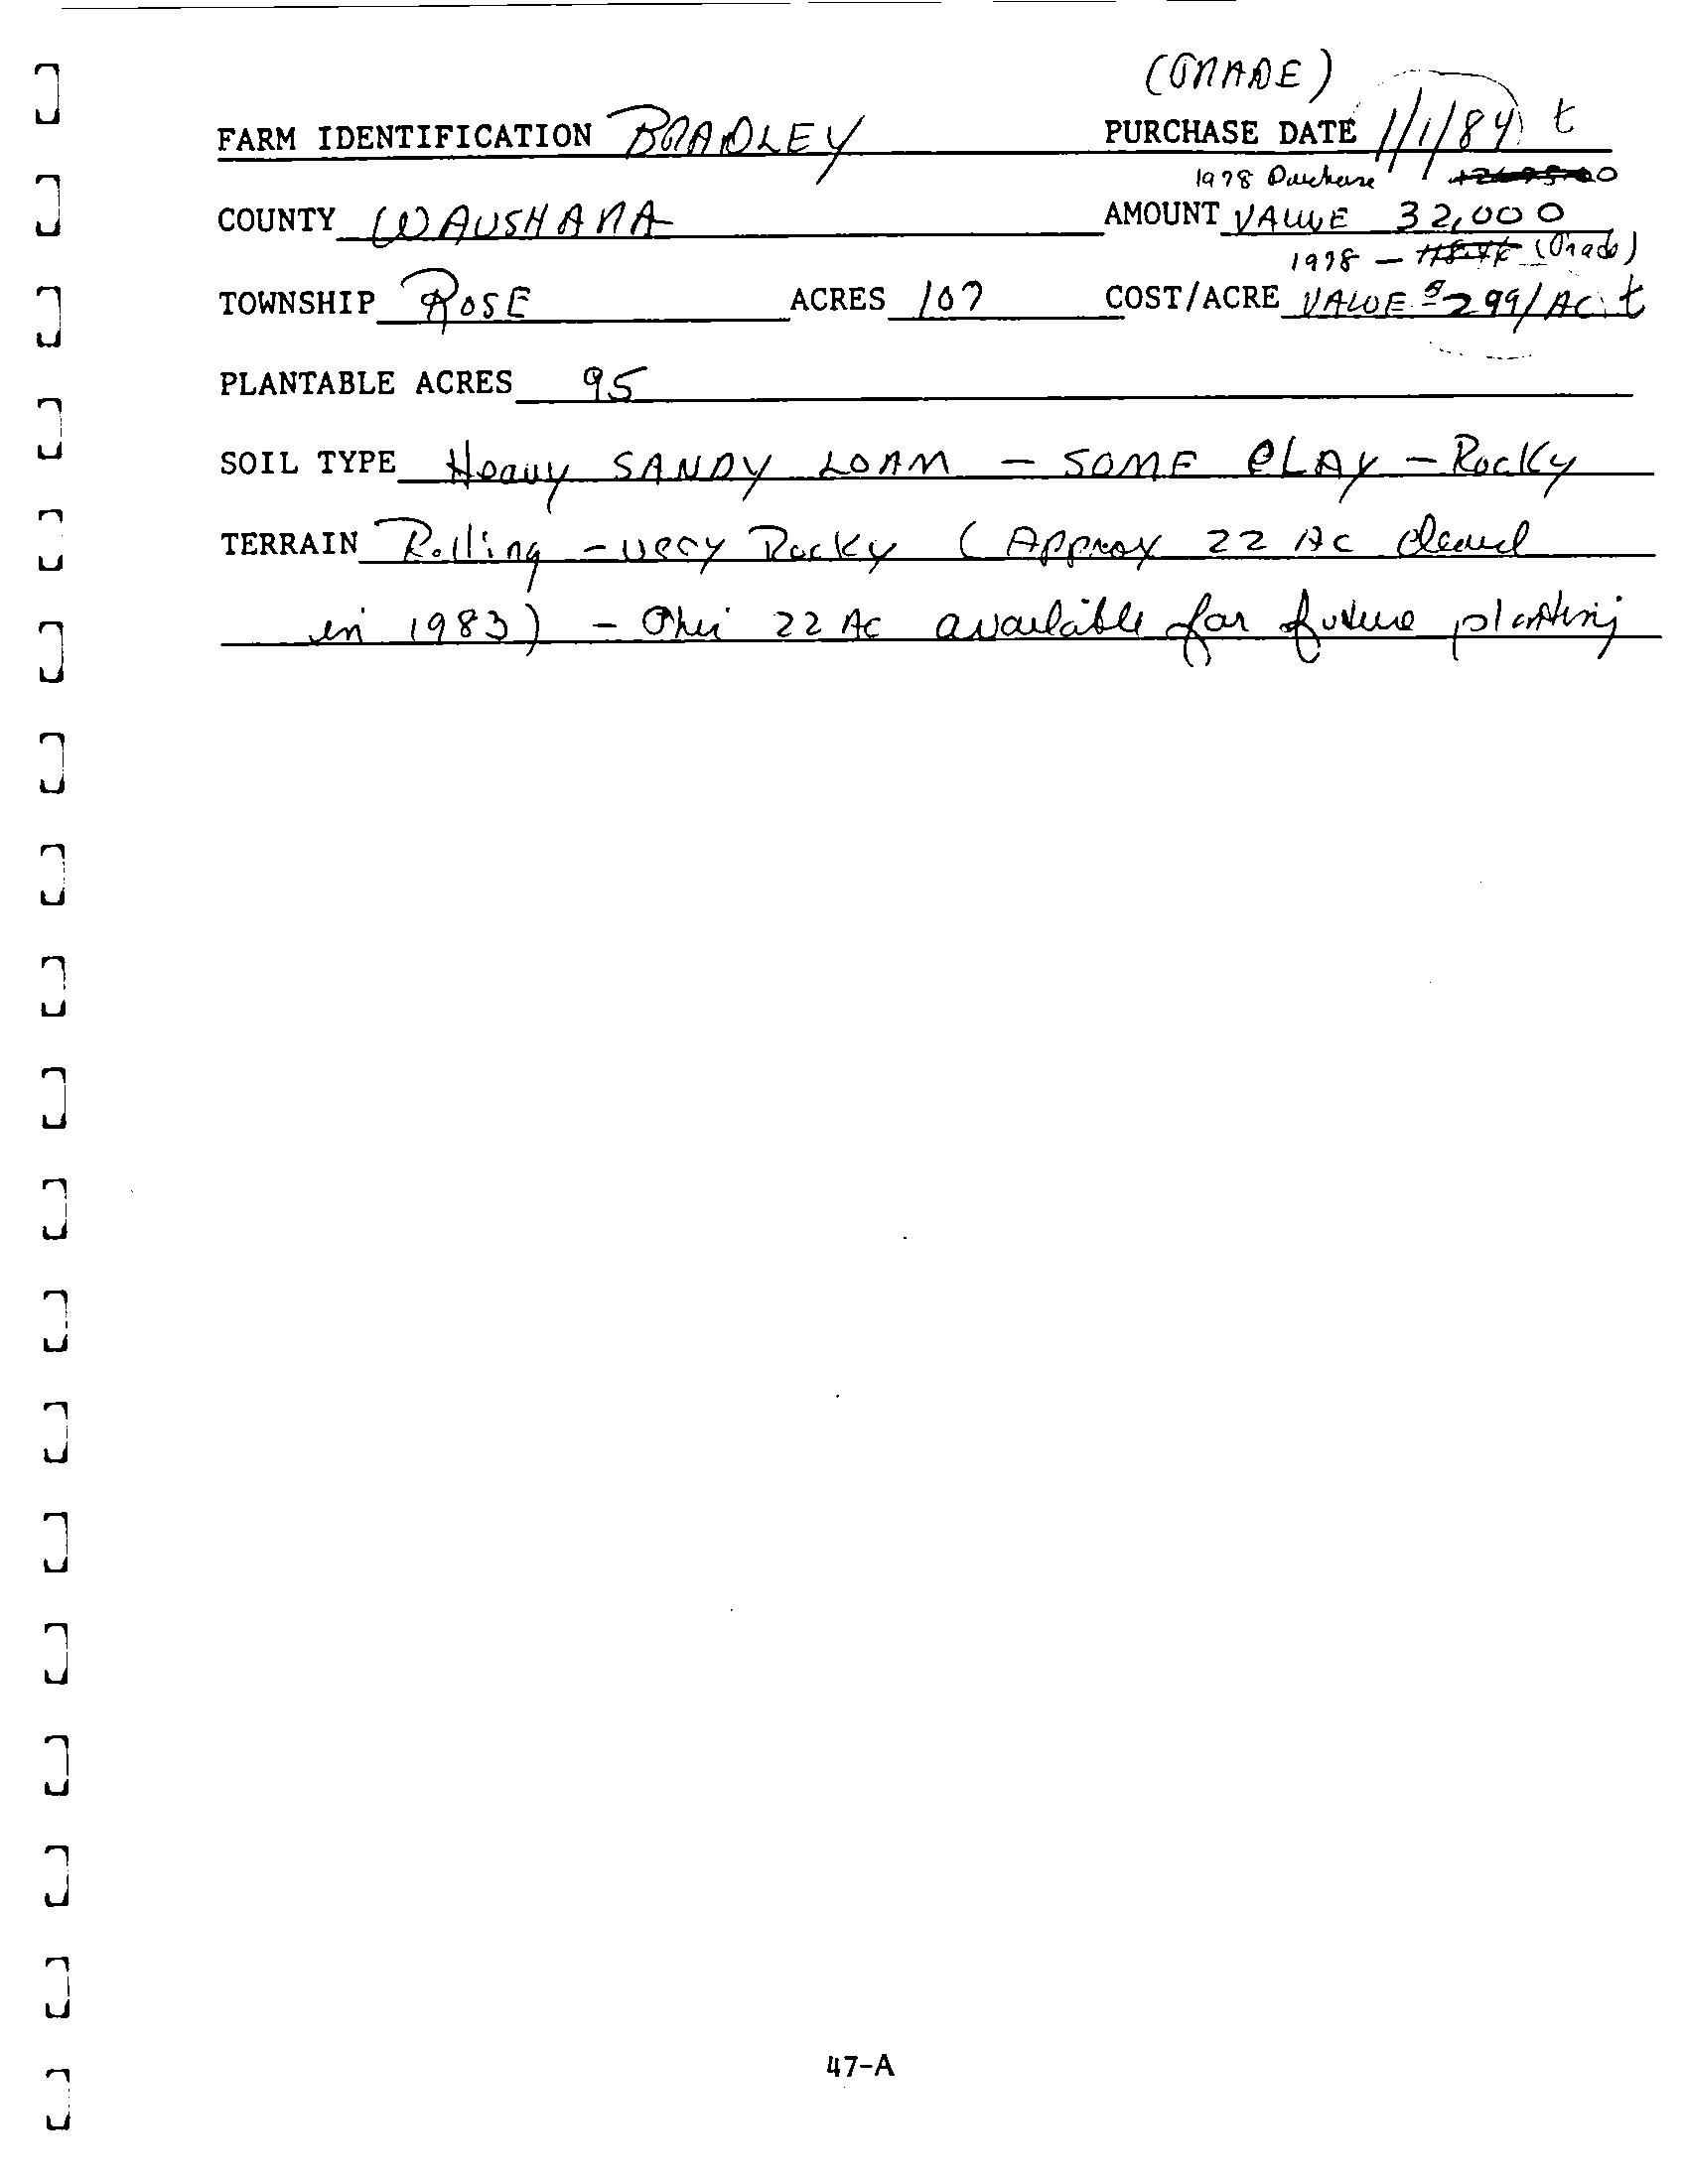 (GRADE)
FARM IDENTIFICATION BRADLEY PURCHASE DATE 1/1/84 t
1978 Purchase
COUNTY WAUSHARA AMOUNT VALUE 32,000
1978 - (Grade)
TOWNSHIP ROSE ACRES 107 COST/ACRE VALUE $299/AC t
PLANTABLE ACRES 95
SOIL TYPE Heavy SANDY LOAM - SOME CLAY - Rocky
TERRAIN Rolling - very Rocky (Approx 22 Ac cleared
in 1983) - Other 22 Ac available for future planting
47-A